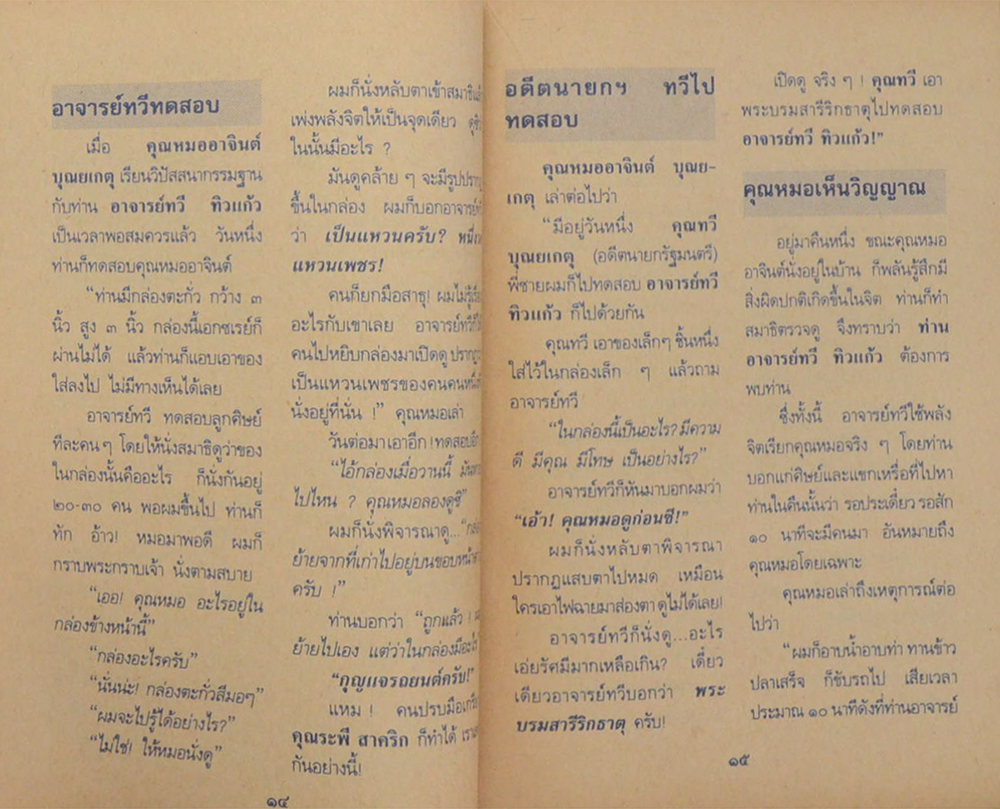 อาจารย์ทวีทดสอบ
เมื่อ คุณหมออาจินต์
บุณยเกตุ เรียนวิปัสสนากรรมฐาน
กับท่าน อาจารย์ทวี ทิวแก้ว
เป็นเวลาพอสมควรแล้ว วันหนึ่ง
ท่านก็ทดสอบคุณหมออาจินต์
“ท่านมีกล่องตะกั่ว กว้าง ๓
นิ้ว สูง ๓ นิ้ว กล่องนี้เอกซเรย์ก็
ผ่านไม่ได้ แล้วท่านก็แอบเอาของ
ใส่ลงไป ไม่มีทางเห็นได้เลย
อาจารย์ทวี ทดสอบลูกศิษย์
ทีละคนๆ โดยให้นั่งสมาธิดูว่าของ
ในกล่องนั้นคืออะไร ก็นั่งกันอยู่
๒๐-๓๐ คน พอผมขึ้นไป ท่านก็
ทัก อ้าว! หมอมาพอดี ผมก็
กราบพระกราบเจ้า นั่งตามสบาย
“เออ! คุณหมอ อะไรอยู่ใน
กล่องข้างหน้านี้”
“กล่องอะไรครับ”
“นั่นน่ะ! กล่องตะกั่วสีมอๆ”
“ผมจะไปรู้ได้อย่างไร?”
“ไม่ใช่! ให้หมอนั่งดู”
ผมก็นั่งหลับตาเข้าสมาธิ
เพ่งพลังจิตให้เป็นจุดเดียว
ในนั้นมีอะไร ?
มันดูคล้าย ๆ จะมีรูป
ขึ้นในกล่อง ผมก็บอกอาจารย์
ว่า เป็นแหวนครับ?
แหวนเพชร!
คนก็ยกมือสาธุ! ผมไม่
อะไรกับเขาเลย อาจารย์ทวี
คนไปหยิบกล่องมาเปิดดู
เป็นแหวนเพชรของคน
นั่งอยู่ที่นั่น !” คุณหมอเล่า
วันต่อมาเอาอีก! ทดสอบ
“ไอ้กล่องเมื่อวานนี้
ไปไหน ? คุณหมอลองดูซิ”
ผมก็นั่งพิจารณาดู...
ย้ายจากที่เก่าไปอยู่บนขอบ
ครับ !”
ท่านบอกว่า “ถูกแล้ว !
ย้ายไปเอง แต่ว่าในกล่องมี
“กุญแจรถยนต์ครับ!”
แหม ! คนปรบมือ
คุณระพี สาคริก ก็ทำได้
กันอย่างนี้!
๑๔
อดีตนายกฯ ทวีไป
ทดสอบ
คุณหมออาจินต์ บุณย-
เกตุ เล่าต่อไปว่า
“มีอยู่วันหนึ่ง คุณทวี
บุณยเกตุ (อดีตนายกรัฐมนตรี)
พี่ชายผมก็ไปทดสอบ อาจารย์ทวี
ทิวแก้ว ก็ไปด้วยกัน
คุณทวี เอาของเล็กๆ ชิ้นหนึ่ง
ใส่ไว้ในกล่องเล็ก ๆ แล้วถาม
อาจารย์ทวี
“ในกล่องนี้เป็นอะไร? มีความ
ดี มีคุณ มีโทษ เป็นอย่างไร?”
อาจารย์ทวีก็หันมาบอกผมว่า
“เอ้า! คุณหมอดูก่อนซี!”
ผมก็นั่งหลับตาพิจารณา
ปรากฏแสบตาไปหมด เหมือน
ใครเอาไฟฉายมาส่องตา ดูไม่ได้เลย!
อาจารย์ทวีก็นั่งดู...อะไร
เอ่ยรัศมีมากเหลือเกิน? เดี๋ยว
เดียวอาจารย์ทวีบอกว่า พระ
บรมสารีริกธาตุ ครับ!
เปิดดู จริง ๆ ! คุณทวี เอา
พระบรมสารีริกธาตุไปทดสอบ
อาจารย์ทวี ทิวแก้ว!”
คุณหมอเห็นวิญญาณ
อยู่มาคืนหนึ่ง ขณะคุณหมอ
อาจินต์นั่งอยู่ในบ้าน ก็พลันรู้สึกมี
สิ่งผิดปกติเกิดขึ้นในจิต ท่านก็ทำ
สมาธิตรวจดู จึงทราบว่า ท่าน
อาจารย์ทวี ทิวแก้ว ต้องการ
พบท่าน
ซึ่งทั้งนี้ อาจารย์ทวีใช้พลัง
จิตเรียกคุณหมอจริง ๆ โดยท่าน
บอกแก่ศิษย์และแขกเหรื่อที่ไปหา
ท่านในคืนนั้นว่า รอประเดี๋ยว รอสัก
๑๐ นาทีจะมีคนมา อันหมายถึง
คุณหมอโดยเฉพาะ
คุณหมอเล่าถึงเหตุการณ์ต่อ
ไปว่า
“ผมก็อาบน้ำอาบท่า ทานข้าว
ปลาเสร็จ ก็ขับรถไป เสียเวลา
ประมาณ ๑๐ นาทีดังที่ท่านอาจารย์
๑๕